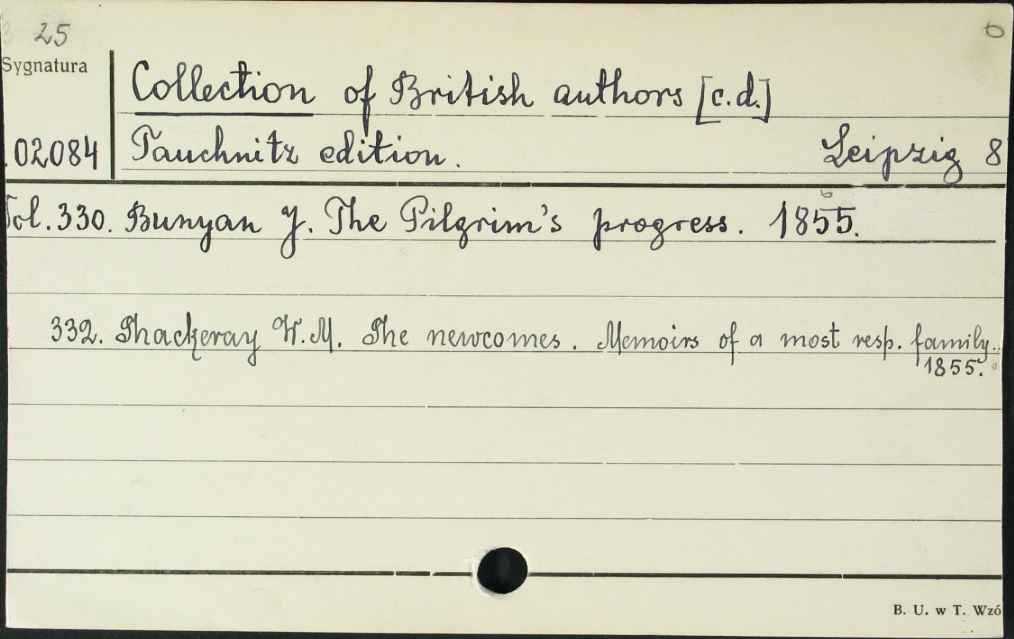 25
Sygnatura
Collection of British authors [c.d.]
02084
Tauchnitz edition. Leipzig 8
Vol. 330. Bunyan J. The Pilgrim's progress. 1855.
332. Thackeray W.M. The newcomes. Memoirs of a most resp. family.
1855.
B. U. w T. Wzó